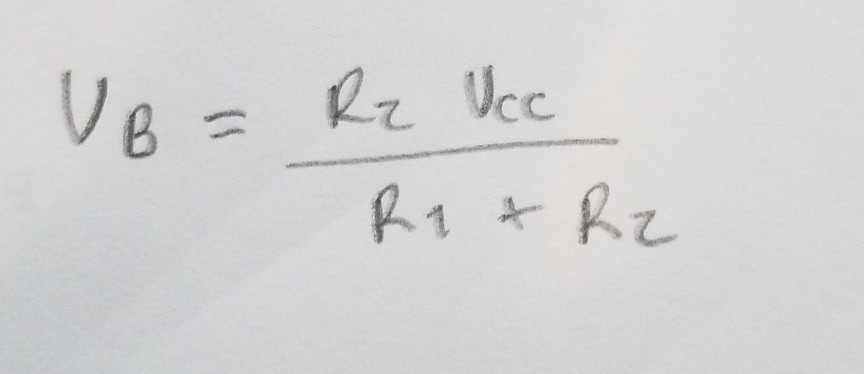 V_B = R_2 V_CC
R_1 + R_2